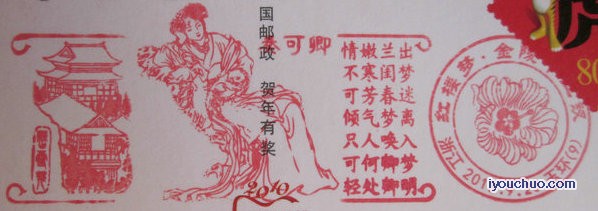 国邮政 贺年有奖
可卿
出梦迷离入梦明
兰闺春梦唤卿卿
嫩寒芳气人何处
情不可倾只可轻
红楼梦·金
江苏
2010
80
iyouchuo.com